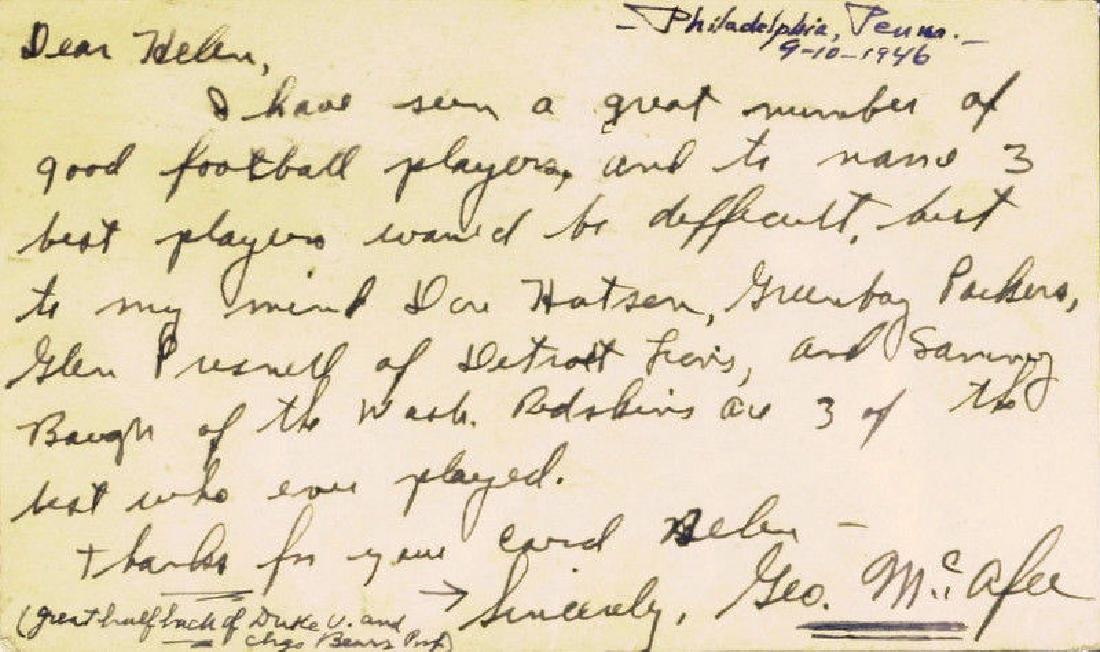 - Philadelphia, Penna. -
9-10-1946
Dear Helen,
I have seen a great number of
good football players, and to name 3
best players would be difficult, but
to my mind Don Hutsen, Greenbay Packers,
Glen Presnell of Detroit Lions, and Sammy
Baugh of the Wash. Redskins are 3 of the
best who ever played.
Thanks for your card Helen -
→ Sincerely, Geo. McAfee
(great halfback of Duke U. and
Chgo Bears Prof)